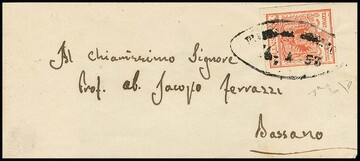 Al Chiarissimo Signore
Prof. ab. Jacopo Ferrazzi
Bassano